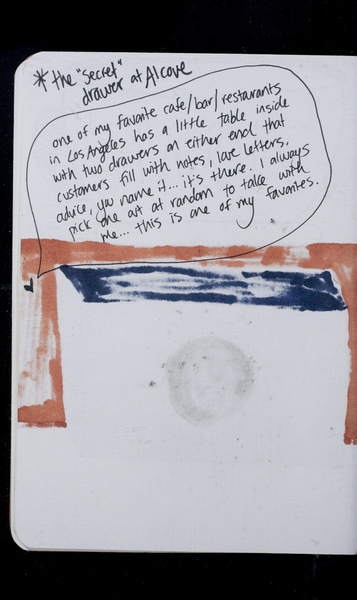 * the "secret"
drawer at Alcove
one of my favorite cafe/bar/restaurants
in Los Angeles has a little table inside
with two drawers on either end that
customers fill with notes, love letters,
advice, you name it... it's there. I always
pick one out at random to take with
me... this is one of my favorites.